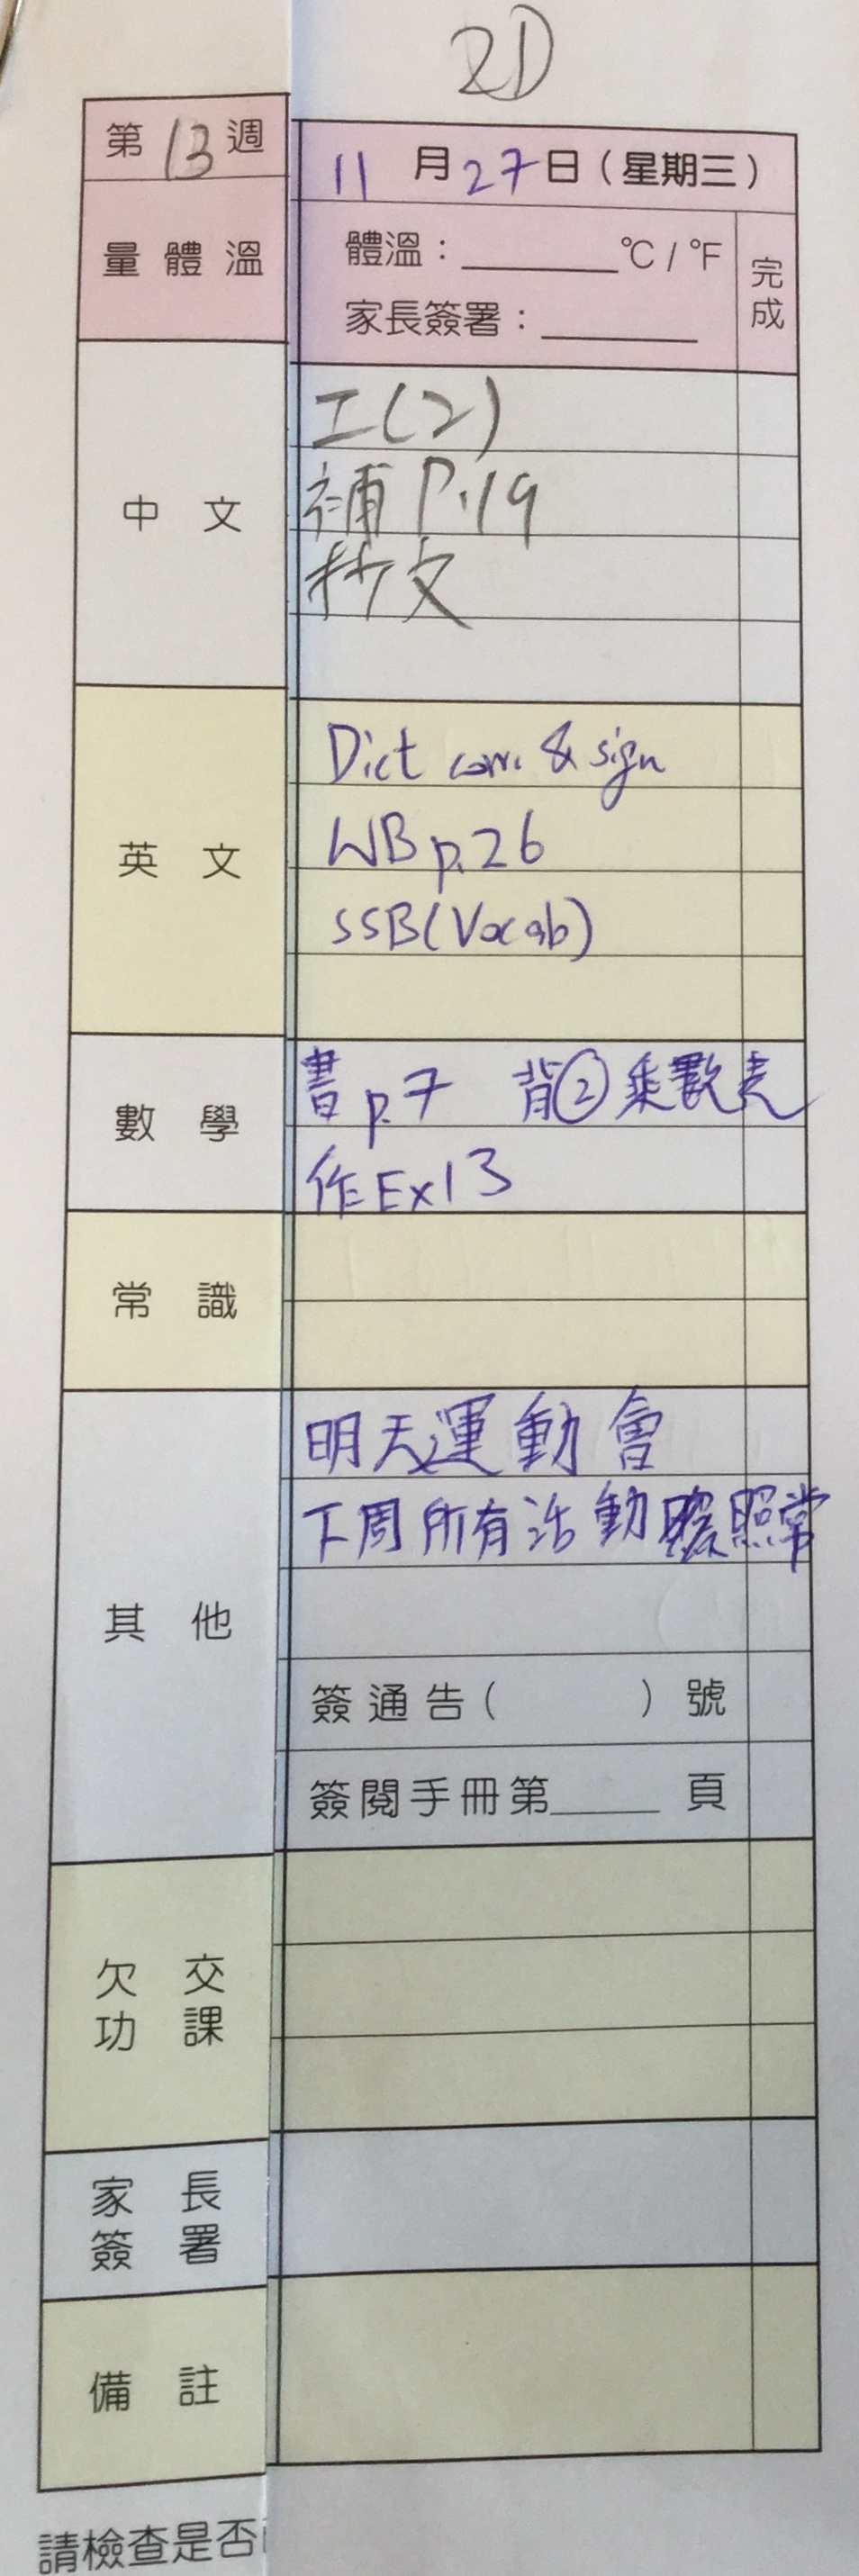 2D
第13週
11月27日(星期三)
量體溫
體溫：______°C / °F
家長簽署：______
完成
中文
工(2)
補 P.19
抄文
英文
Dict corr. & sign
WB p.26
SSB(Vocab)
數學
書p.7 背②乘數表
作Ex13
常識
其他
明天運動會
下周所有活動 照常
簽通告( )號
簽閱手冊第______頁
欠交
功課
家長
簽署
備註
請檢查是否